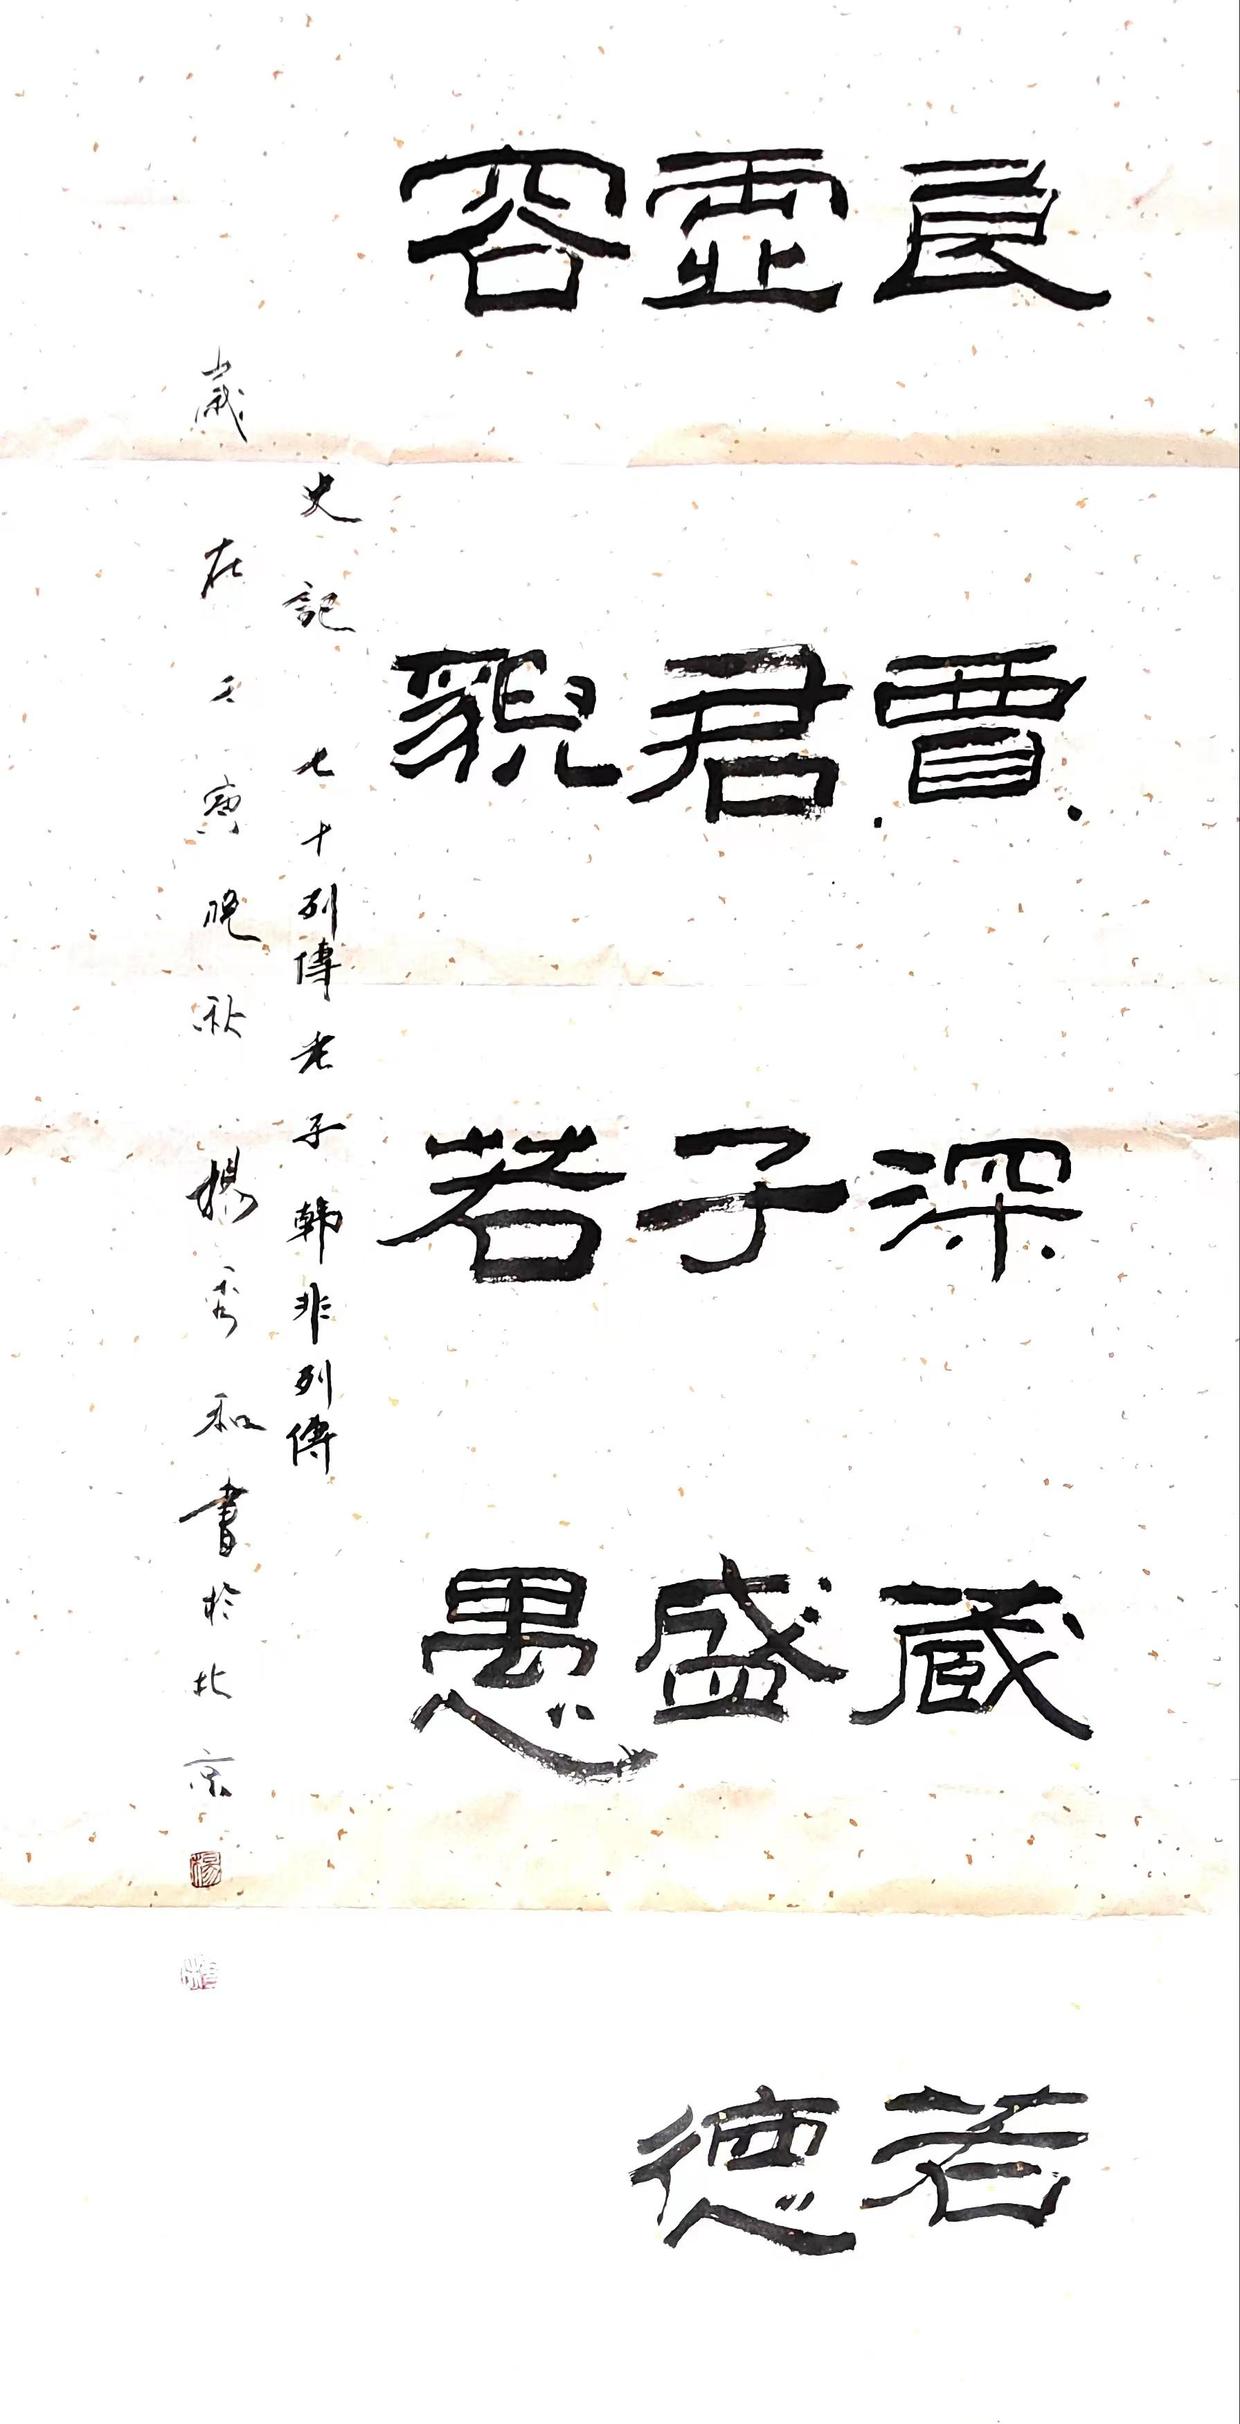 良賈深蔵若
虛君子盛德
容貌若愚
史記七十列傳老子韓非列傳
歲在壬寅晚秋楊秀和書於北京
楊